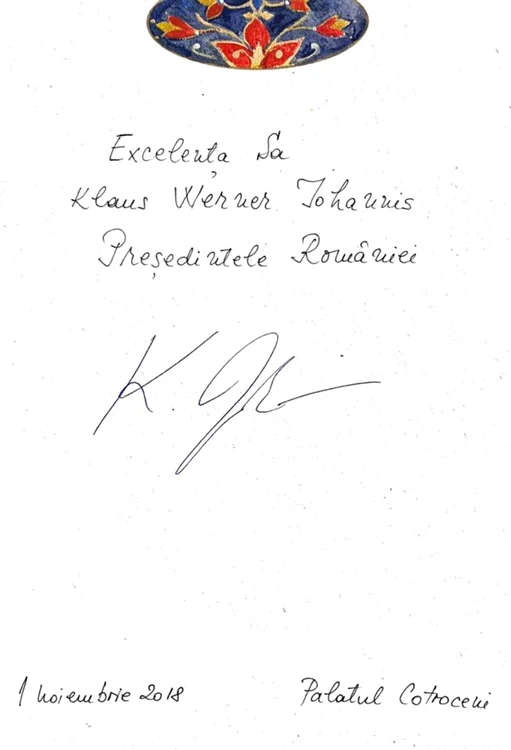 Excelența Sa
Klaus Werner Iohannis
Președintele României
1 noiembrie 2018
Palatul Cotroceni